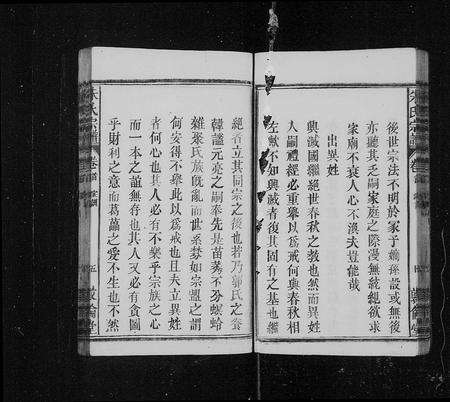 後世宗法不明於冢子嫡孫設或無後
亦聽其乏嗣家庭之際漫無統紀欲求
家廟不衰人心不渙夫豈能哉
出異姓
興滅國繼絕世春秋之教也然而異姓
人嗣禮經必重舉以為戒何與春秋相
左歟不知興滅者復其固有之基也繼
絕者立其同宗之後也若乃郭氏之養
韓謐元亮之嗣奉先是苗莠不分螟蛉
雜眾氏族既亂而世系紊如宗盟之謂
何安得不舉此以為戒也且夫立異姓
者何心也其人必有不樂乎宗族之心
而一本之誼無存也其人又必有貪圖
乎財利之意而葛藟之愛不生也不然
朱氏宗譜
卷
五
敦倫堂